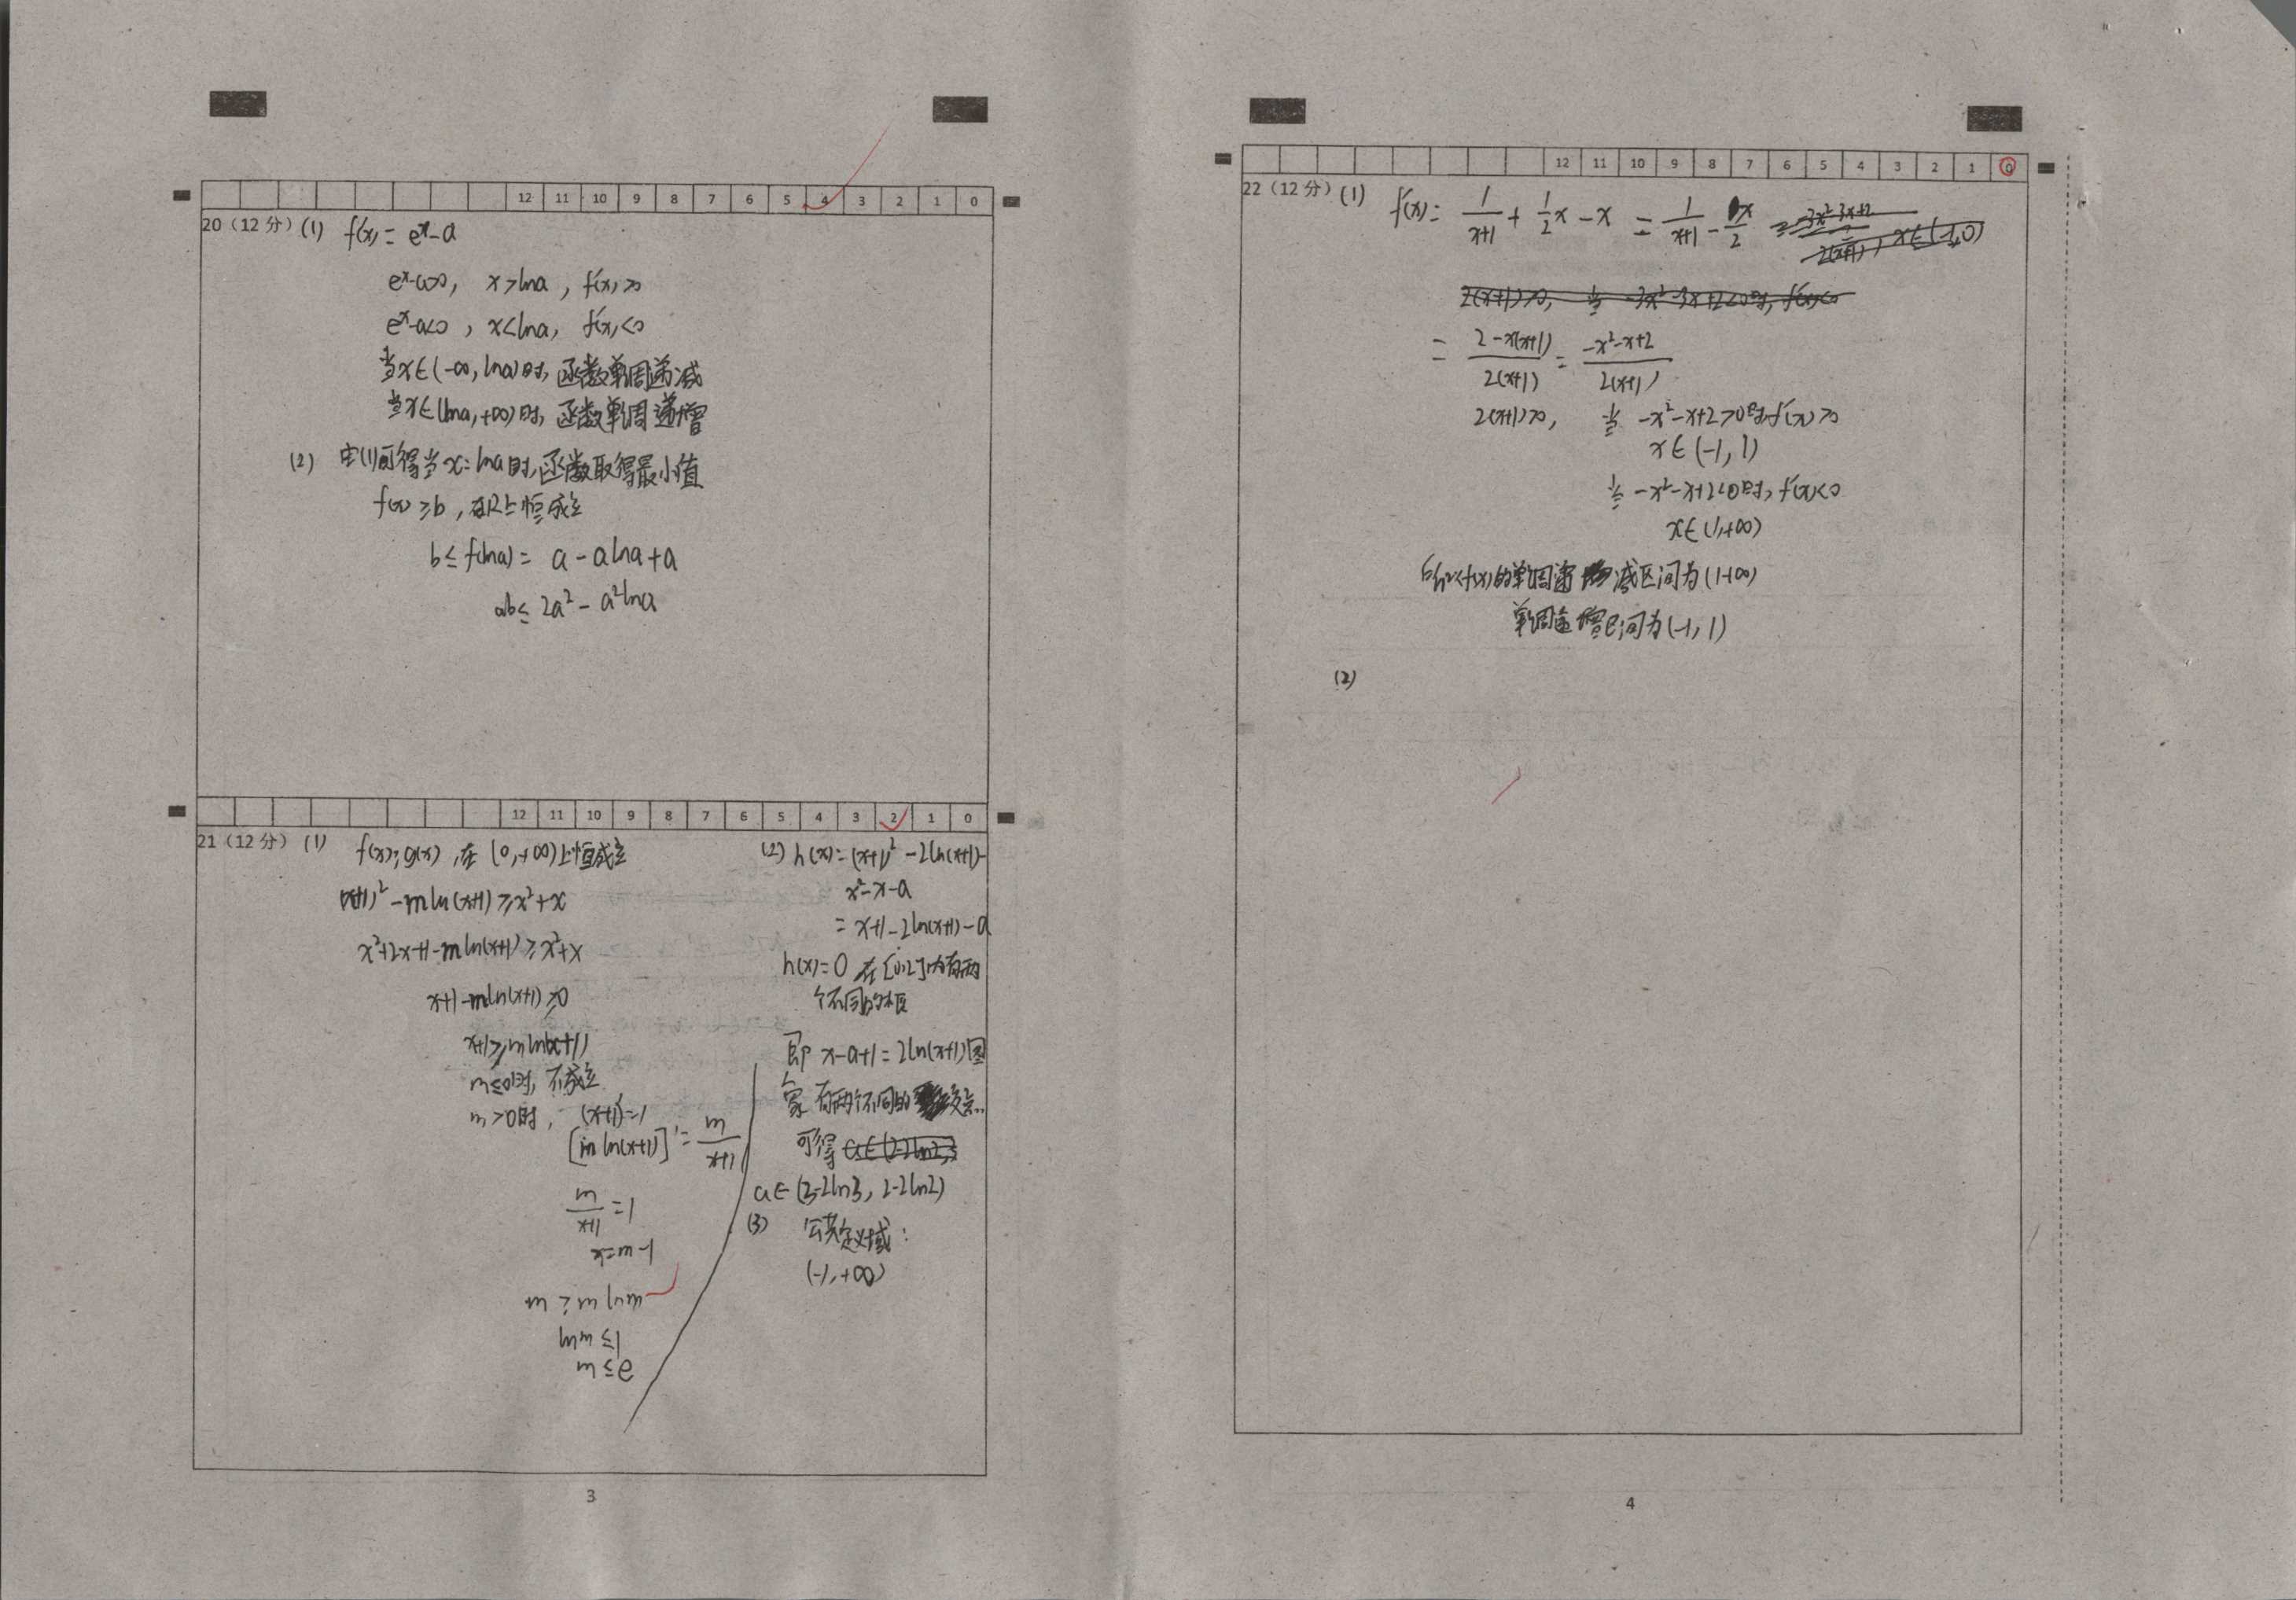 12 11 10 9 8 7 6 5 4 3 2 1 0
20（12 分）(1) f'(x) = eˣ-a
eˣ-a>0, x>lna, f'(x)>0
eˣ-a<0, x<lna, f'(x)<0
当x∈(-∞, lna)时, 函数单调递减
当x∈(lna,+∞)时, 函数单调递增
(2) 由(1)可得当x=lna时,函数取得最小值
f(x)≥b, 在R上恒成立
b≤f(lna)= a-alna+a
ab≤ 2a²-a²lna
12 11 10 9 8 7 6 5 4 3 2 1 0
21（12 分）(1) f(x)≥g(x), 在[0,+∞)上恒成立
(x+1)²-mln(x+1)≥x²+x
x²+2x+1-mln(x+1)≥x²+x
x+1-mln(x+1)≥0
x+1≥mln(x+1)
m≤0时, 不成立
m>0时, (x+1)'=1
[mln(x+1)]'=m/(x+1)
m/(x+1)=1
x=m-1
m≥mlnm
lnm≤1
m≤e
(2) h(x)=(x+1)²-2ln(x+1)-
x²-x-a
=x+1-2ln(x+1)-a
h(x)=0 在[0,2]内有两
个不同的根
即 x-a+1=2ln(x+1)图
象有两个不同的交点.
可得
a∈(3-2ln3, 2-2ln2)
(3) 公共定义域:
(-1,+∞)
3
12 11 10 9 8 7 6 5 4 3 2 1 0
22（12 分）(1) f'(x)= 1/(x+1) + 1/2x - x = 1/(x+1) - x/2
= (2-x(x+1))/(2(x+1)) = (-x²-x+2)/(2(x+1))
2(x+1)>0, 当 -x²-x+2>0时f'(x)>0
x∈(-1, 1)
当-x²-x+2<0时, f'(x)<0
x∈(1,+∞)
所以f(x)的单调递减区间为(1,+∞)
单调递增区间为(-1, 1)
(2)
4